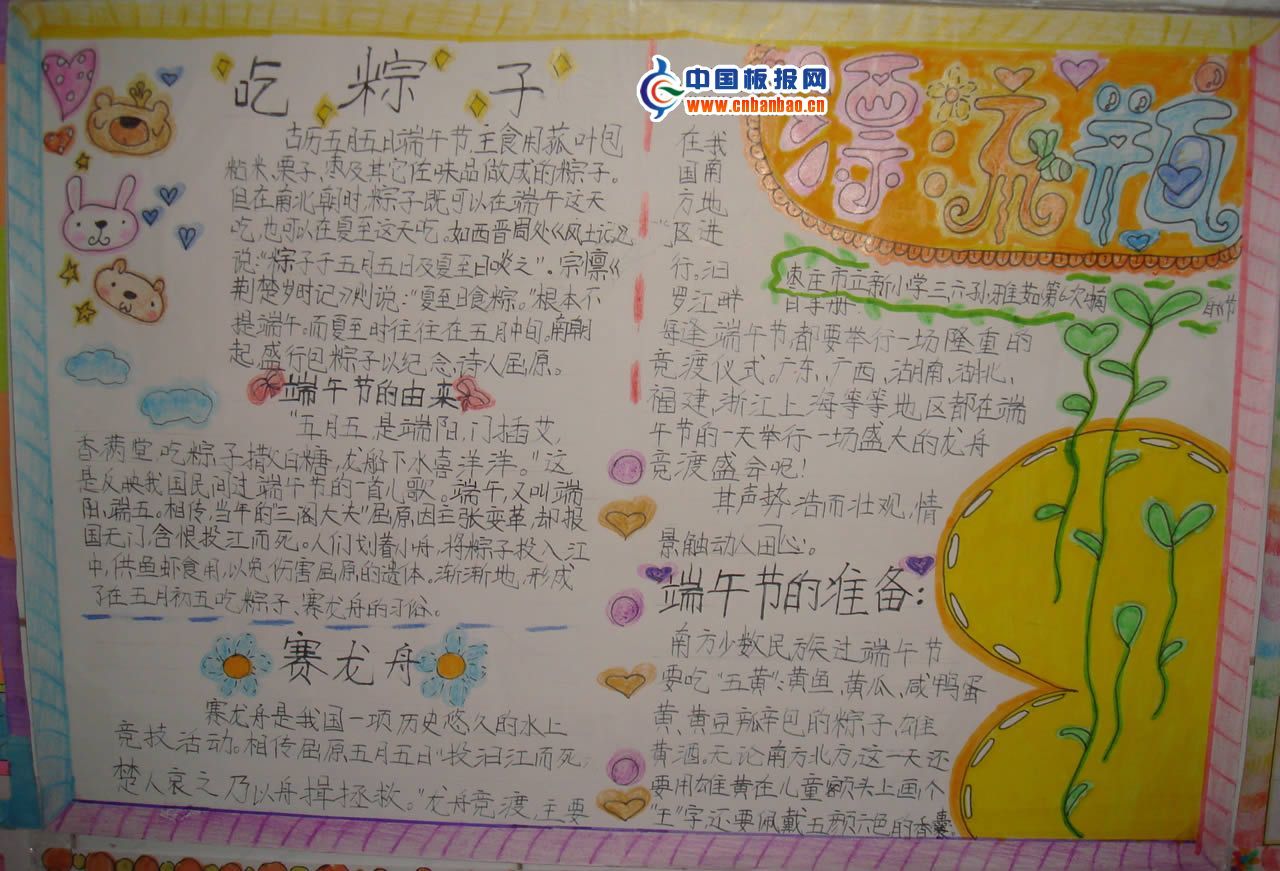 中国板报网
www.cnbanbao.cn
漂流瓶
枣庄市立新小学三六孙雅茹第6次揭
自学册
吃粽子
古历五月五日端午节,主食用菰叶包
粘米、栗子、枣及其它佐味品做成的粽子。
但在南北朝时,粽子既可以在端午这天
吃,也可以在夏至这天吃。如西晋周处《风土记》
说:“粽子于五月五日及夏至日啖之”。宗懔《
荆楚岁时记》则说:“夏至日食粽。”根本不
提端午。而夏至时往往在五月中旬,南朝
起盛行包粽子以纪念诗人屈原。
端午节的由来
“五月五,是端阳,门插艾,
香满堂,吃粽子撒白糖,龙船下水喜洋洋。”这
是反映我国民间过端午节的一首儿歌。端午,又叫端
阳,端五。相传,当年的“三闾大夫”屈原,因主张变革,却报
国无门,含恨投江而死。人们划着小舟,将粽子投入江
中,供鱼虾食用,以免伤害屈原的遗体。渐渐地,形成
了在五月初五吃粽子、赛龙舟的习俗。
赛龙舟
赛龙舟是我国一项历史悠久的水上
竞技活动。相传屈原五月五日“投汨江而死,
楚人哀之乃以舟揖拯救。”龙舟竞渡,主要
在我
国南
方地
区进
行。汨
罗江畔
每逢端午节都要举行一场隆重的
竞渡仪式。广东、广西、湖南、湖北、
福建、浙江上海等等地区都在端
午节的一天举行一场盛大的龙舟
竞渡盛会呢!
其声势浩而壮观,情
景触动人心。
端午节的准备:
南方少数民族过端午节
要吃“五黄”:黄鱼,黄瓜,咸鸭蛋
黄、黄豆瓤辛包的粽子、雄
黄酒。无论南方北方,这一天还
要用雄黄在儿童额头上画个
“王”字,还要佩戴五颜六色的香囊